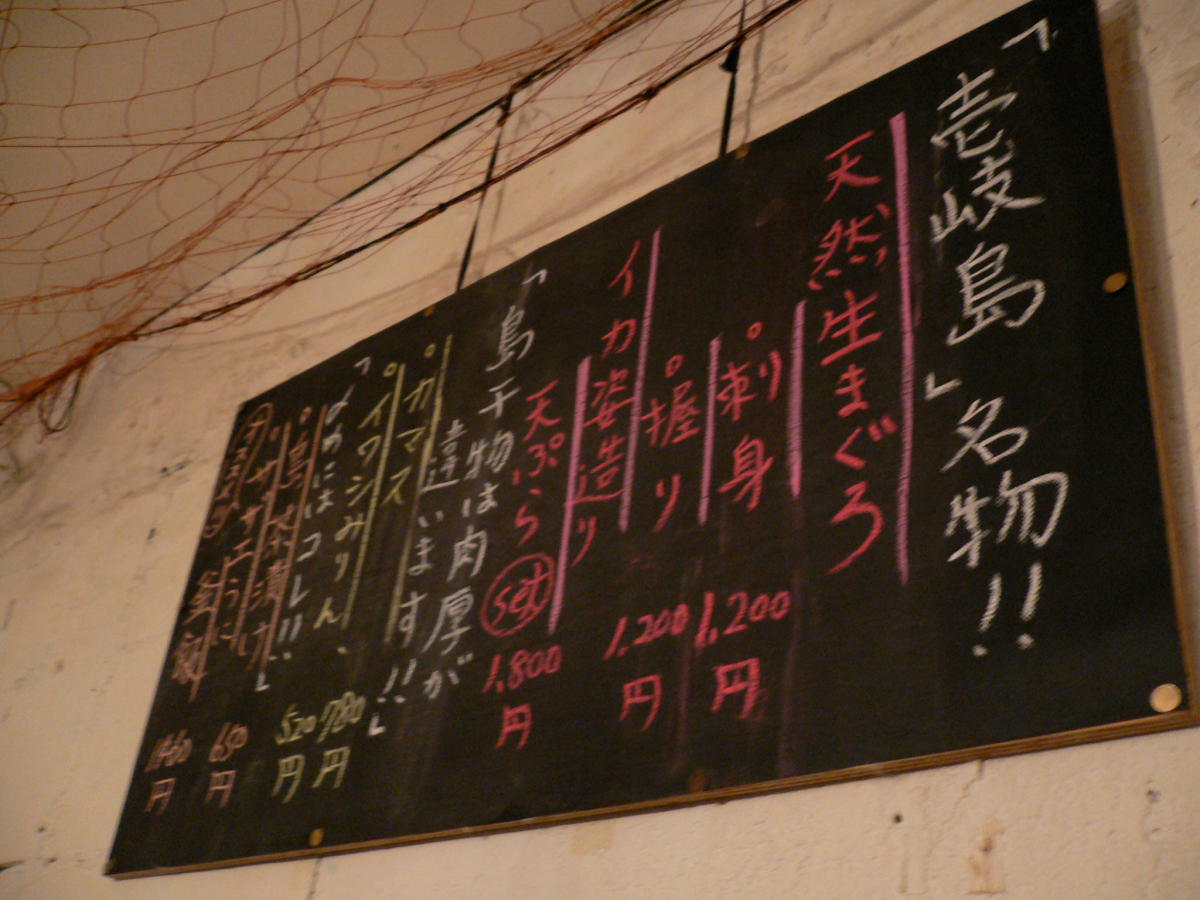 「壱岐島」名物!!
天然生まぐろ
。刺身 1,200円
。握り 1,200円
イカ姿造り
天ぷら set 1,800円
「島干物は肉厚が
違います!!」
。カマス 780円
。イワシみりん、 520円
「〆めにはコレ!!」
。島茶漬け 650円
。サザエうに
釜飯 1460円